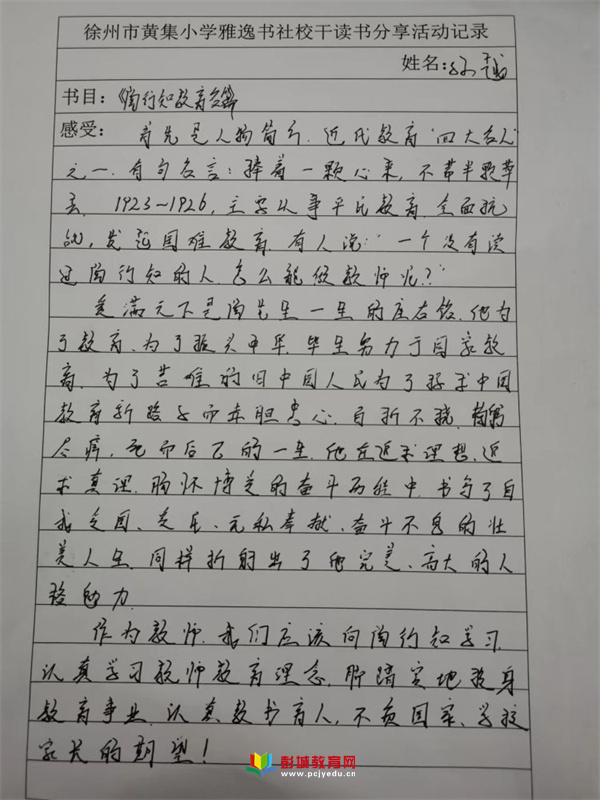 徐州市黄集小学雅逸书社校干读书分享活动记录
姓名:孙越
书目:《陶行知教育名篇》
感受: 首先是人物简介.近代教育"四大名人"
之一.有句名言:捧着一颗心来,不带半颗草
去. 1923~1926,主要从事平民教育.全面抗
战,发起国难教育.有人说:"一个没有读
过陶行知的人.怎么能做教师呢?"
爱满天下是陶先生一生的座右铭.他为
了教育.为了振兴中华.毕生努力于国家教
育.为了苦难的旧中国人民为了探求中国
教育新路子而赤胆忠心.百折不挠.鞠躬
尽瘁,死而后已的一生.他在追求理想.追
求真理.胸怀博爱的奋斗历程中.书写了自
我爱国、爱民、无私奉献、奋斗不息的壮
美人生.同样折射出了他完美、高大的人
格魅力.
作为教师.我们应该向陶行知学习.
认真学习教师教育理念.脚踏实地投身
教育事业.认真教书育人,不负国家、学校
家长的期望!
彭城教育网
www.pcjyedu.cn